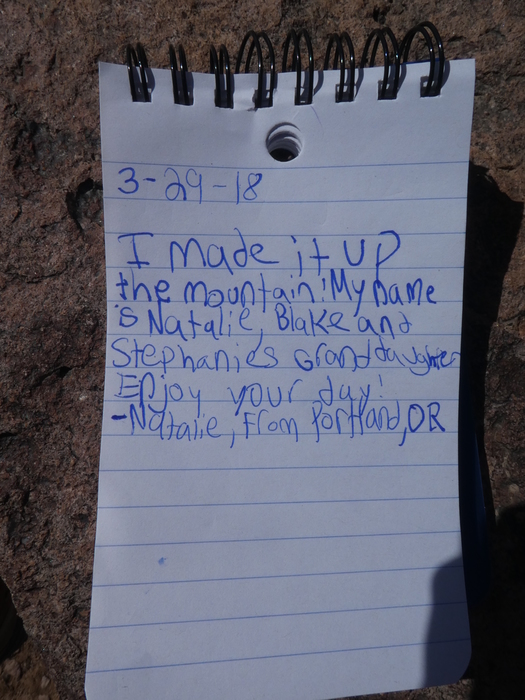 3-29-18
I made it up
the mountain! My name
is Natalie, Blake and
Stephanie's Granddaughter
Enjoy your day!
-Natalie, From Portland, OR